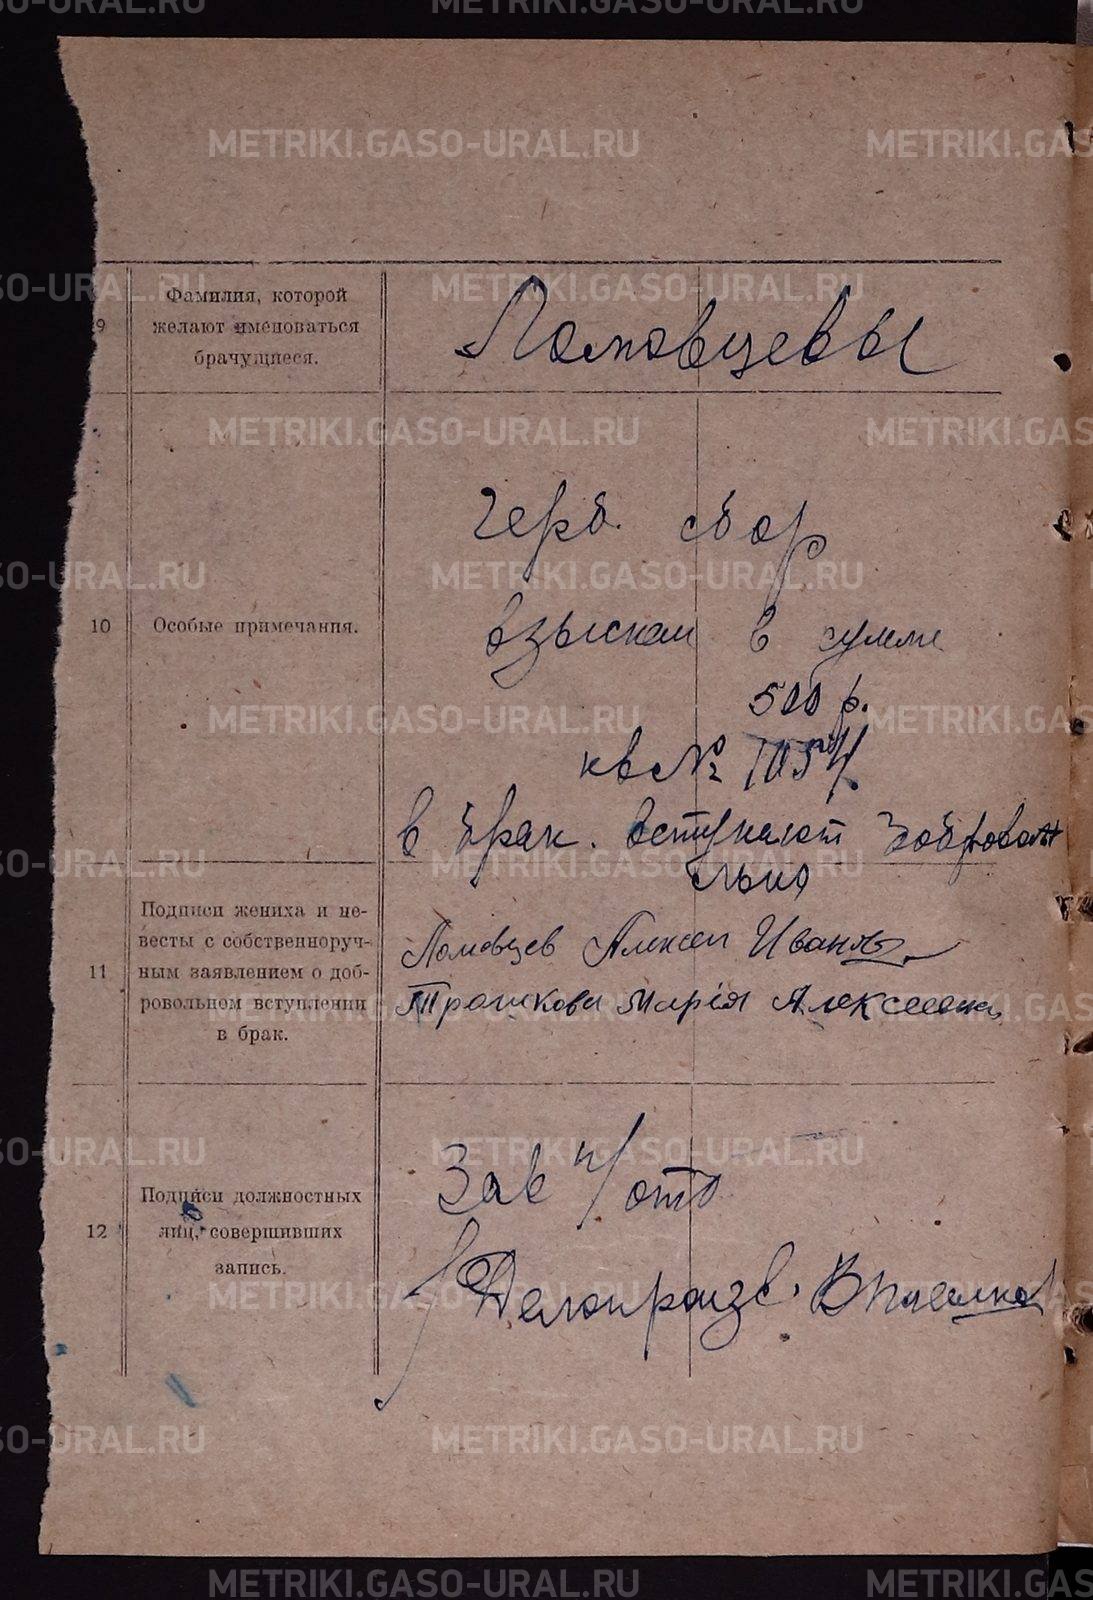 METRIKI.GASO-URAL.RU
9
Фамилия, которой
желают именоваться
брачущиеся.
Ломовцевы
10
Особые примечания.
герб. сбор
взыскан в сумме
500 р.
кв №
в брак. вступают добровол
льно
11
Подписи жениха и не-
весты с собственноруч-
ным заявлением о доб-
ровольном вступлении
в брак.
Ломовцев Алексей Иванов
Трошкова Марія Алексеевна
12
Подписи должностных
лиц, совершивших
запись.
Зав п/отд
Делопроизв.